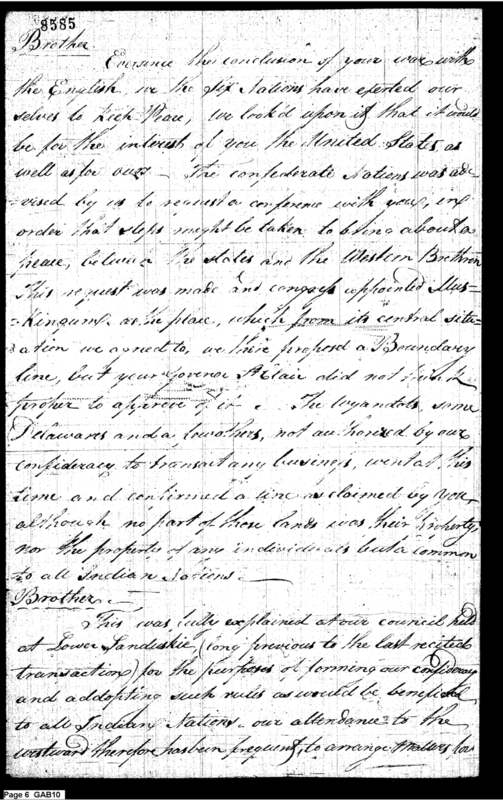 8585
Brother
Eversince the conclusion of your war with
the English, we the Six Nations have exerted our
selves to Keep Peace, we look'd upon it that it would
be for the interest of you the United States, as
well as for ours - The confederate Nations was ad-
vised by us to request a conference with you, in
order that steps might be taken to bring about a
peace, between the states and the Western Brethren
This request was made and congress appointed Mus-
-Kingum as the place, which from its central situ-
-ation we agreed to, we there proposed a Boundary
line, but your Govenor St Clair did not think
proper to approve of it. The Wyandots, some
Delawares and a few others, not authorized by our
confideracy to transact any business, went at this
time and confirmed a line as claimed by you,
although no part of those lands was their Property,
nor the property of any individuals but a common
to all Indian Nations. -
Brother -
This was fully explained at our council held
at Lower Sanduskie, (long previous to the last recited
transaction) for the purposes of forming our confideracy
and addopting such rules as would be beneficial
to all Indian Nations. our attendance to the
westward therefore has been frequent, to arrange matters
Page 6 GAB10